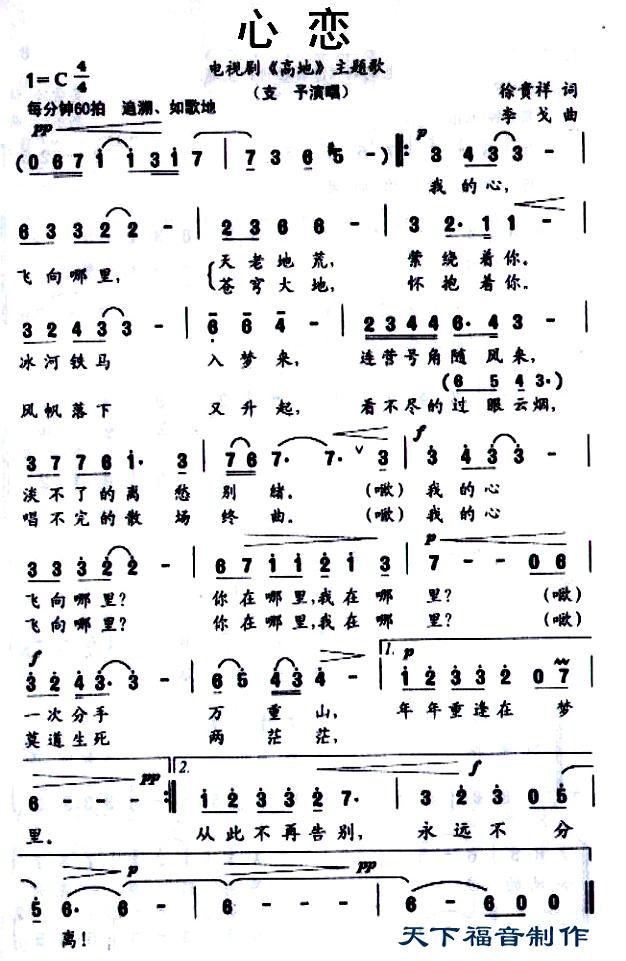 心 恋
电视剧《高地》主题歌
1=C 4/4
（支 予演唱）
徐贵祥 词
每分钟60拍 追溯、如歌地
李 戈 曲
pp
p
(0 6 7 1 1 3 1 7 | 7 3 6 #5 -) |: 3 4 3 3 - |
我 的 心，
6 3 3 2 2 - | 2 3 6 6 6 - | 3 2· 1 1 - |
飞 向 哪 里， 天 老 地 荒， 萦 绕 着 你。
苍 穹 大 地， 怀 抱 着 你。
3 2 4 3 3 - | 6 6 4 - | 2 3 4 4 6· 4 3 - |
冰 河 铁 马 入 梦 来， 连 营 号 角 随 风 来，
(6 5 4 3·)
风 帆 落 下 又 升 起， 看 不 尽 的 过 眼 云 烟，
f
3 7 7 6 1· 3 | 7 6 7· 7· 3 | 3 4 3 3 - |
淡 不 了 的 离 愁 别 绪。 （瞰）我 的 心
唱 不 完 的 散 场 终 曲。 （瞰）我 的 心
p
3 3 3 2 2 - | 6 7 1 1 2 1 3 | 7 - - 0 6 |
飞 向 哪 里？ 你 在 哪 里，我 在 哪 里？ （瞰）
飞 向 哪 里？ 你 在 哪 里，我 在 哪 里？ （瞰）
f
1. p
3 2 4 3· 3 - | 6 5 4 3 4 - | 1 2 3 3 2 0 7 |
一 次 分 手 万 重 山， 年 年 重 逢 在 梦
莫 道 生 死 两 茫 茫，
pp 2. f
6 - - - :| 1 2 3 3 2 7· | 3 2 2 0 5 |
里。 从 此 不 再 告 别， 永 远 不 分
p pp
5 6· 6· | 6 - - - | 6 - - - | 6 - 6 0 0 ‖
离！
天下福音制作